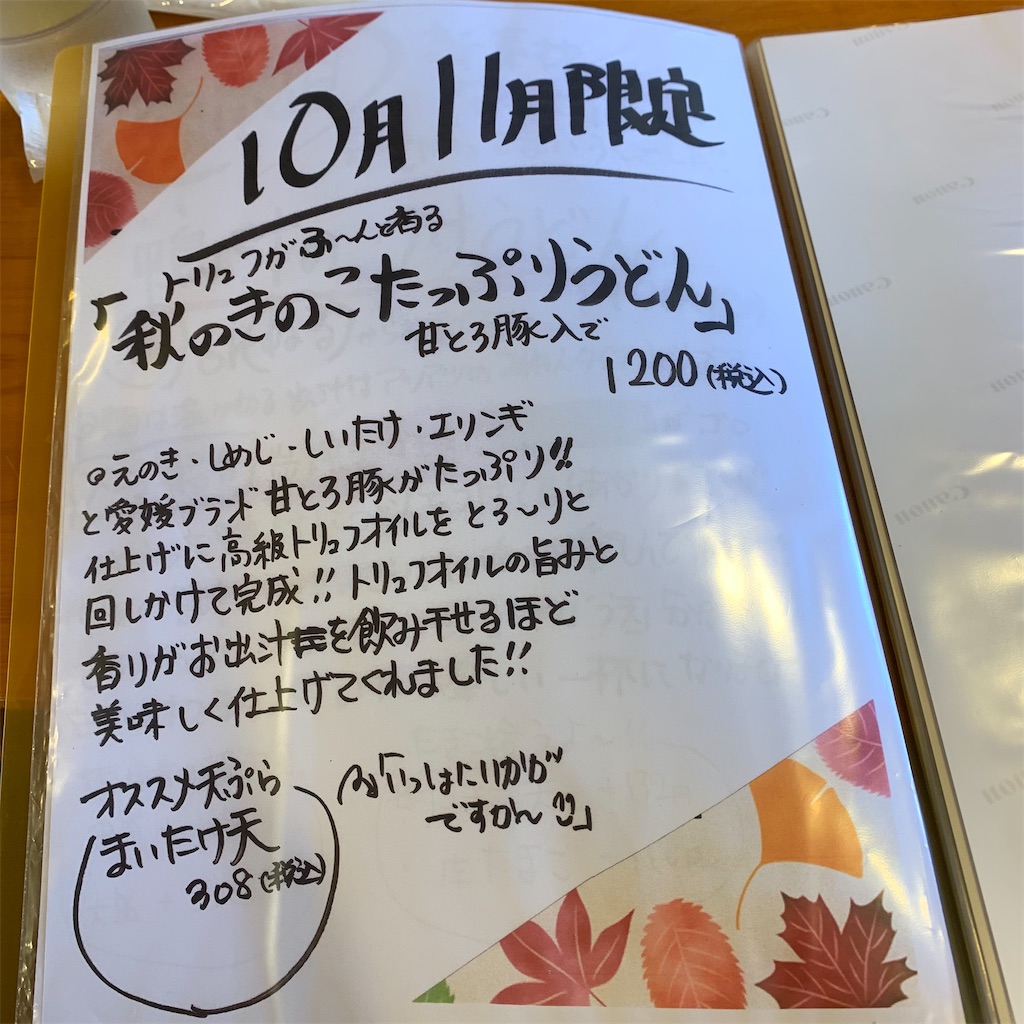 10月11月限定
トリュフがふ〜んと香る
「秋のきのこたっぷりうどん」
甘とろ豚入で
1200(税込)
◎えのき・しめじ・しいたけ・エリンギ
と愛媛ブランド甘とろ豚がたっぷり!!
仕上げに高級トリュフオイルをとろ〜りと
回しかけて完成!!トリュフオイルの旨みと
香りがお出汁を飲み干せるほど
美味しく仕上げてくれました!!
オススメ天ぷら
まいたけ天
308(税込)
いかが
ですかん
Canon
Canon
Canon
Canon
Canon
Canon
Canon